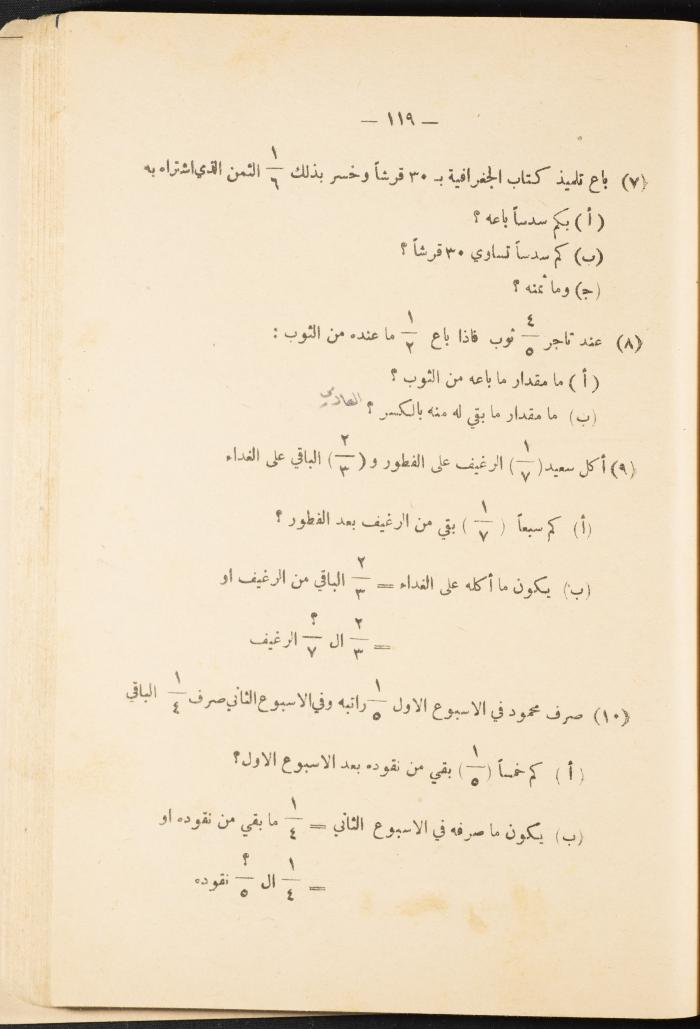 — ١١٩ —
(٧) باع تلميذ كتاب الجغرافية بـ ٣٠ قرشاً وخسر بذلك ١/٦ الثمن الذي اشتراه به
(أ) بكم سدساً باعه ؟
(ب) كم سدساً تساوي ٣٠ قرشاً ؟
(ج) وما ثمنه ؟
(٨) عند تاجر ٤/٥ ثوب فاذا باع ١/٢ ما عنده من الثوب :
(أ) ما مقدار ما باعه من الثوب ؟
(ب) ما مقدار ما بقي له منه بالكسر ؟ العادي
(٩) أكل سعيد (١/٧) الرغيف على الفطور و (٢/٣) الباقي على الغداء
(أ) كم سبعاً (١/٧) بقي من الرغيف بعد الفطور ؟
(ب) يكون ما أكله على الغداء = ٢/٣ الباقي من الرغيف او
= ٢/٣ ال ؟/٧ الرغيف
(١٠) صرف محمود في الاسبوع الاول ١/٥ راتبه وفي الاسبوع الثاني صرف ١/٤ الباقي
(أ) كم خمساً (١/٥) بقي من نقوده بعد الاسبوع الاول؟
(ب) يكون ما صرفه في الاسبوع الثاني = ١/٤ ما بقي من نقوده او
= ١/٤ ال ؟/٥ نقوده